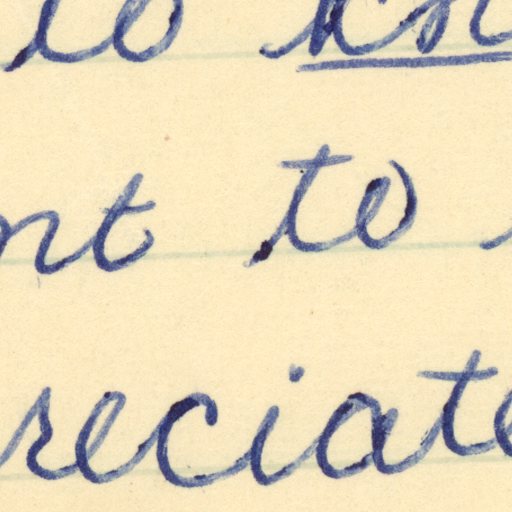 to kn
nt to
reciate